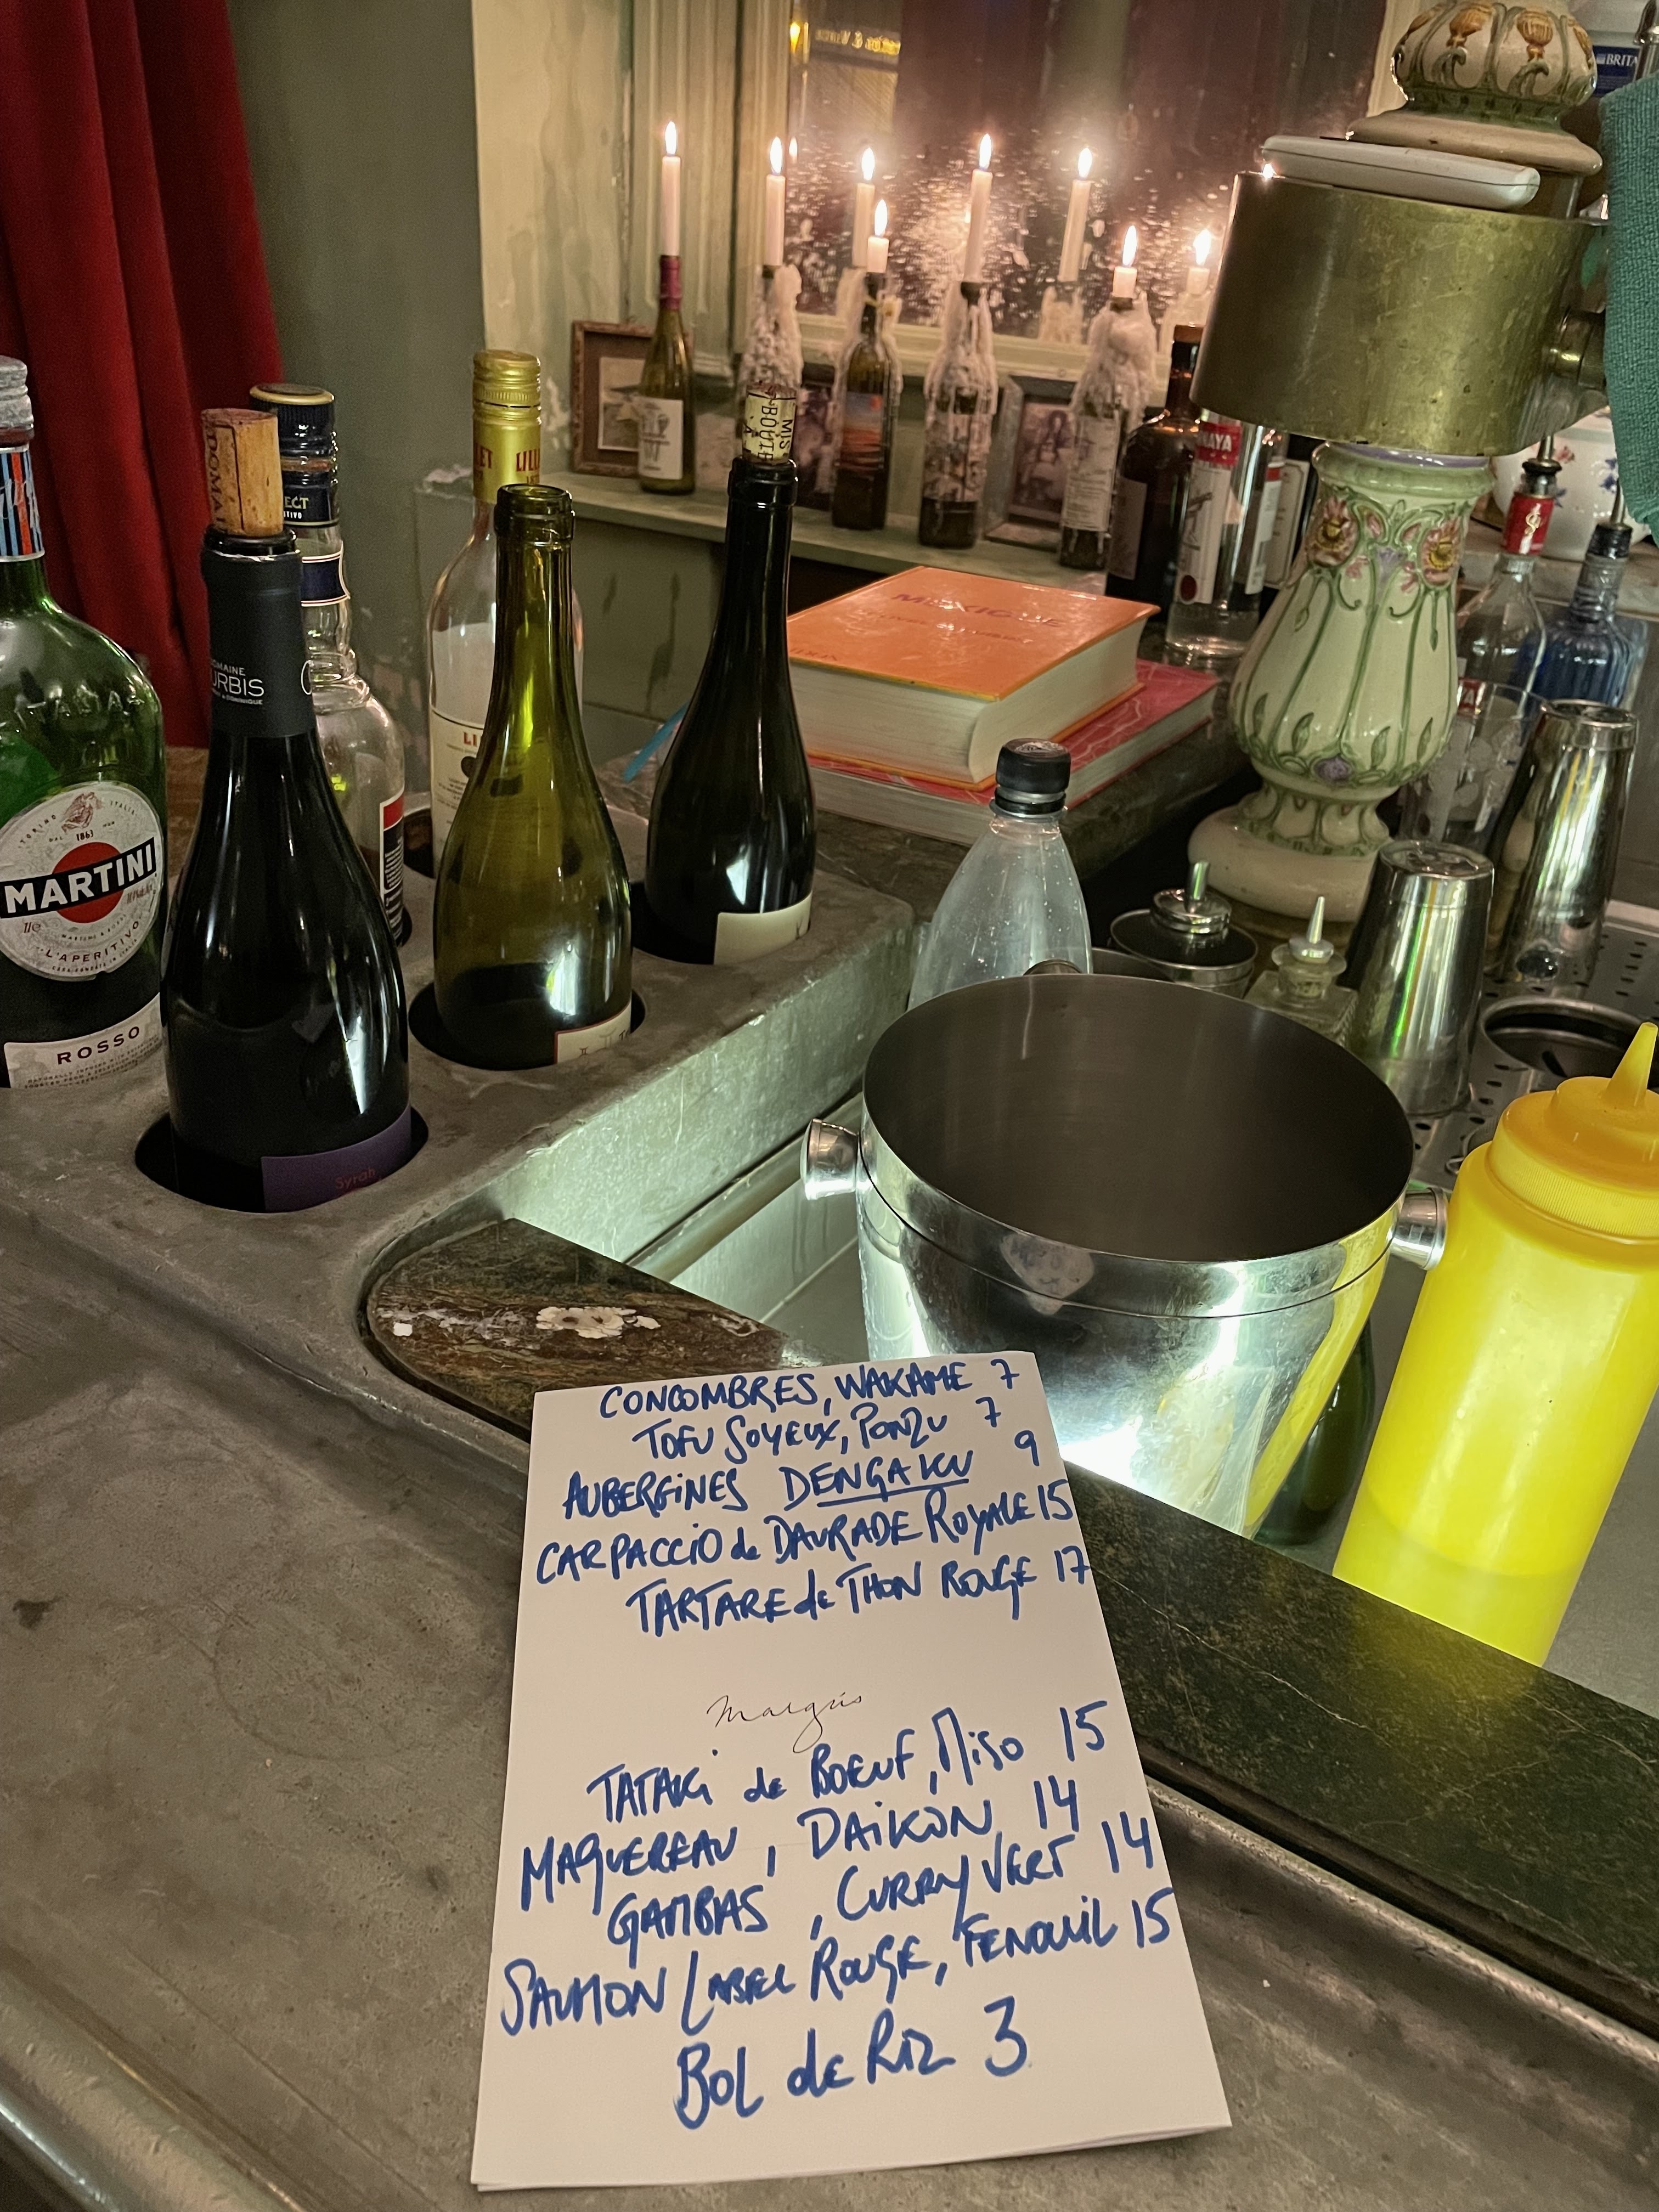 BRITA
LILLET
MIS
BOUTE
DOMAI
MEXIQUE
DOMAINE
URBIS
ITALIA
TORINO
ITALIA
1863
MARTINI
L'APERITIVO
ROSSO
Syrah
CONCOMBRES, WAKAME 7
TOFU SOYEUX, PONZU 7
AUBERGINES DENGAKU 9
CARPACCIO de DAURADE ROYALE 15
TARTARE de THON ROUGE 17
Margús
TATAKI de BOEUF, MISO 15
MAQUEREAU, DAIKON 14
GAMBAS, CURRY VERT 14
SAUMON LABEL ROUGE, FENOUIL 15
BOL de RIZ 3